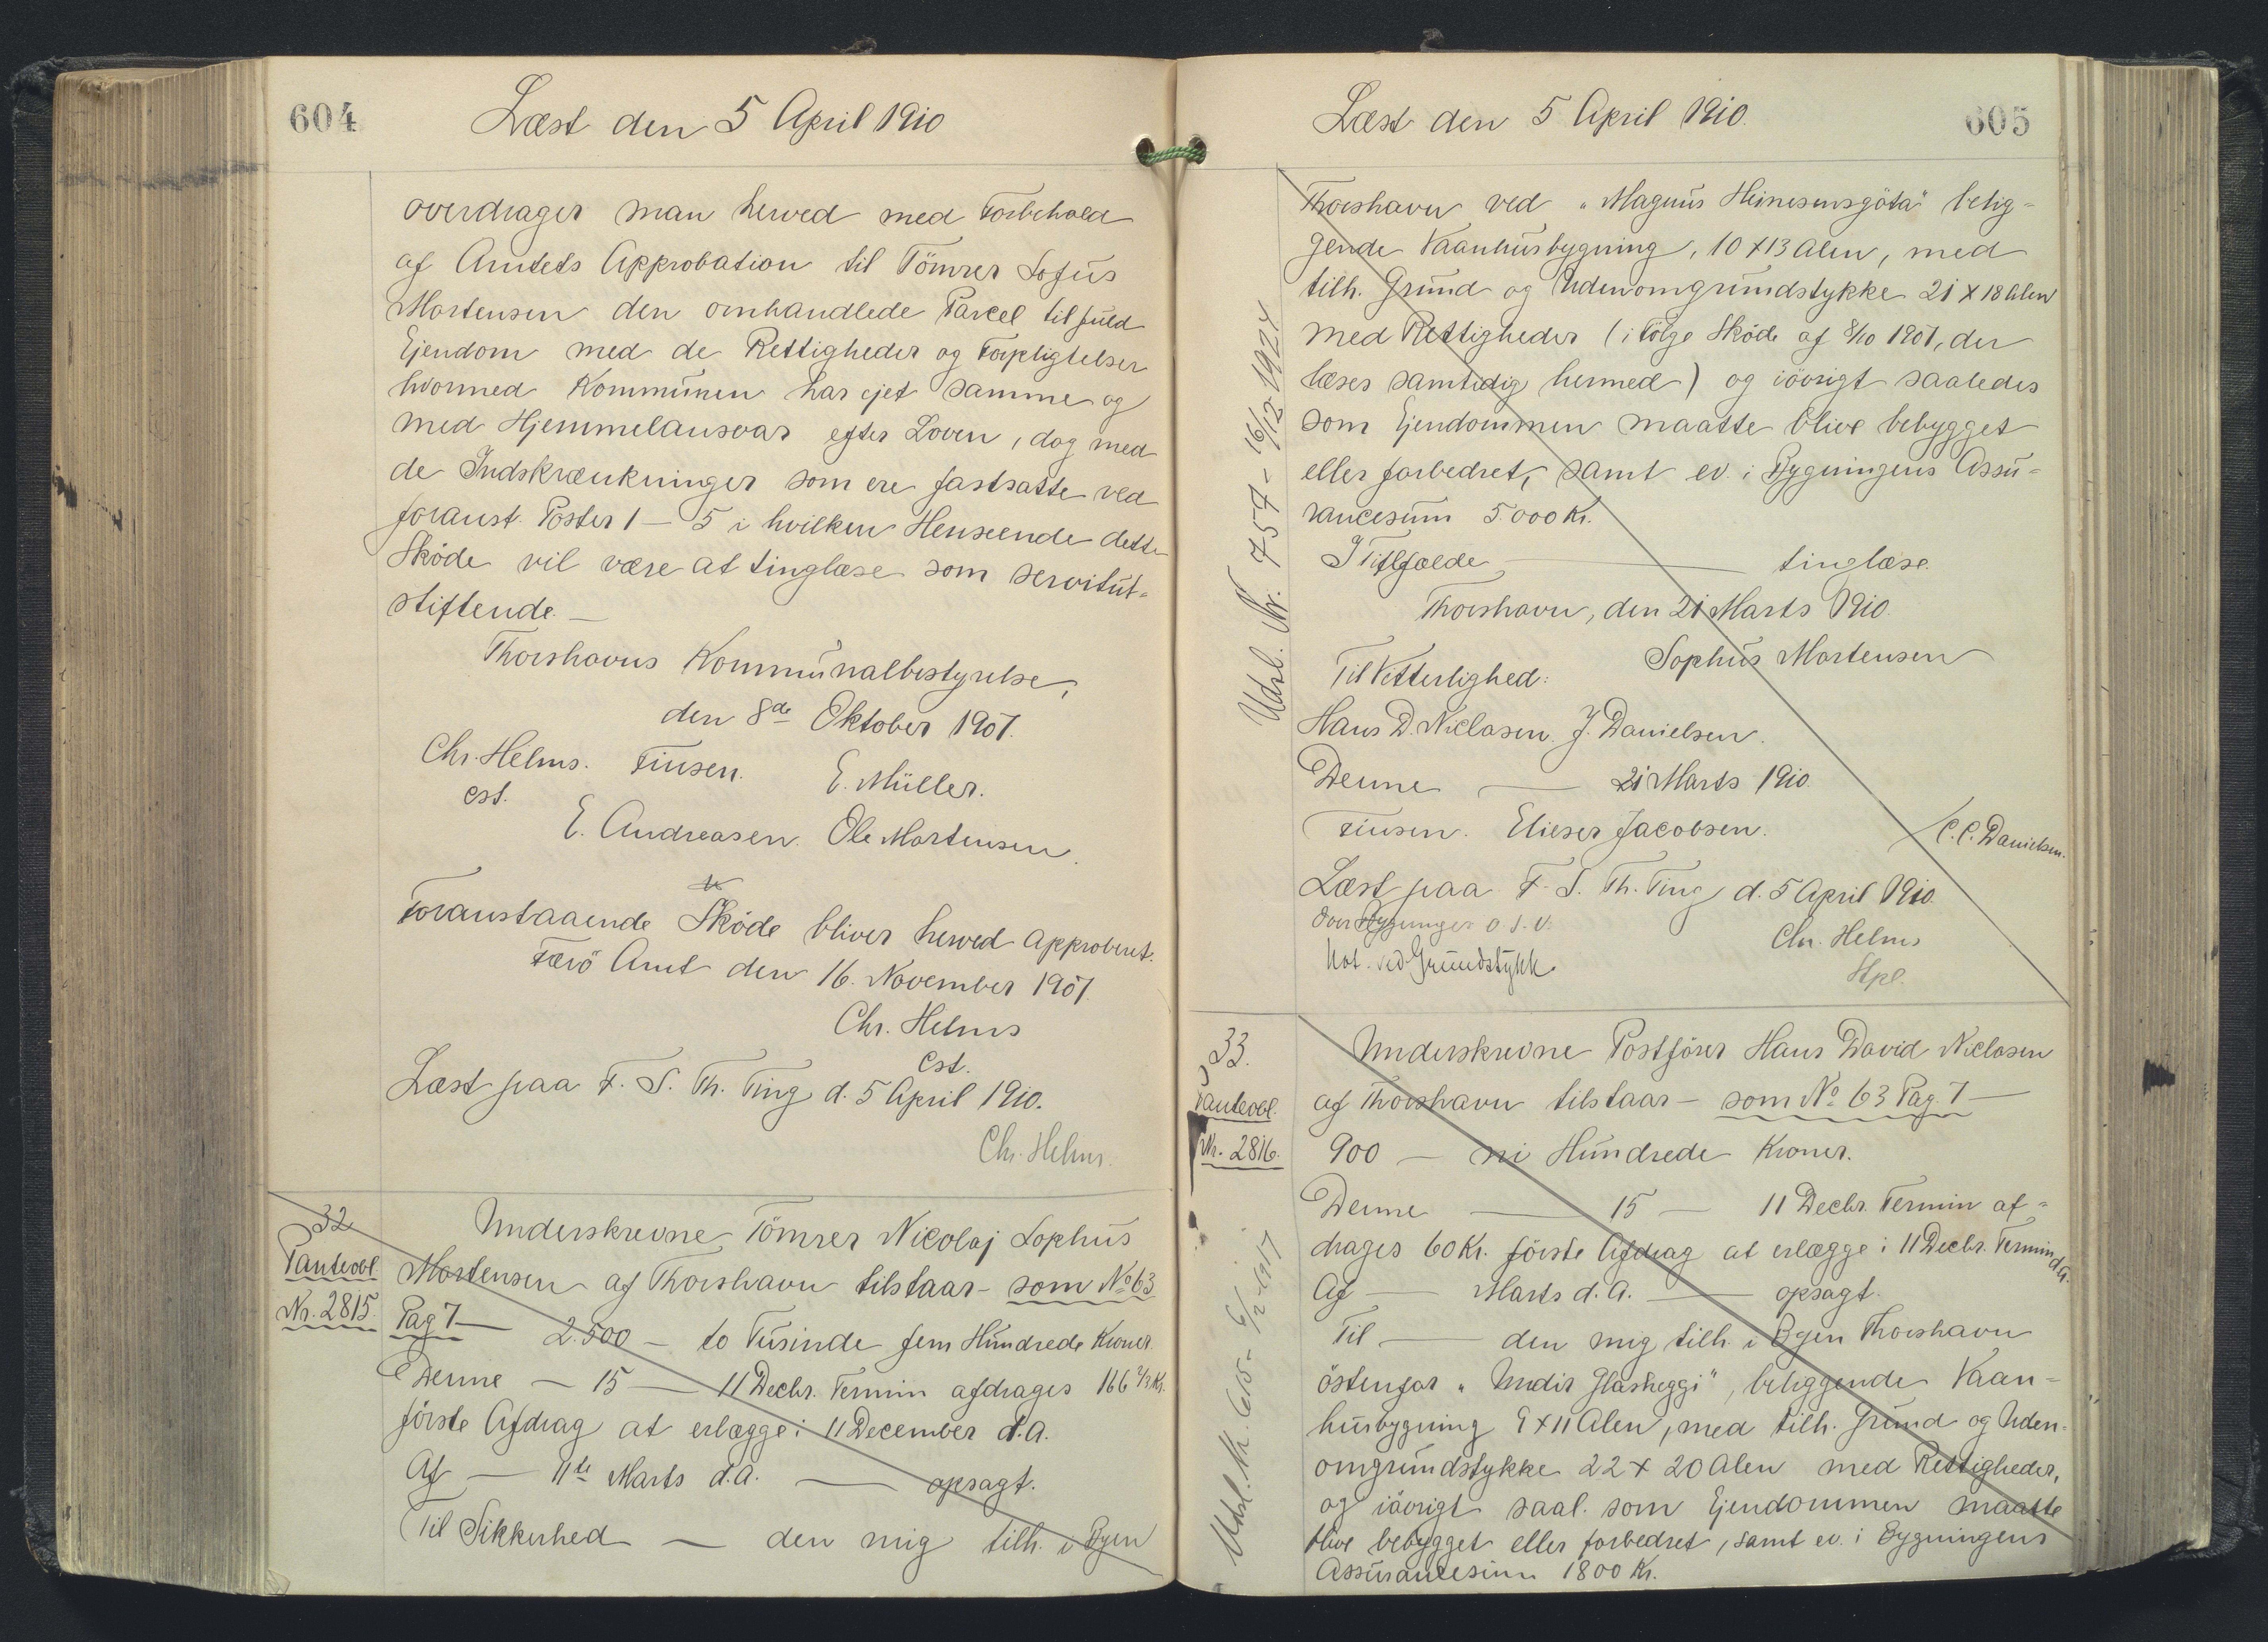 604
Læst den 5 April 1910
overdrager man herved med Forbehold
af Amtets Approbation til Tömrer Sofus
Mortensen den omhandlede Parcel til fuld
Ejendom med de Rettigheder og Forpligtelser
hvormed Kommunen har ejet samme og
med Hjemmelansvar efter Loven, dog med
de Indskrænkninger som ere fastsatte ved
foranst. Poster 1 - 5 i hvilken Henseende dette
Sköde vil være at tinglæse som servitut-
stiftende. -
Thorshavns Kommunalbestyrelse,
den 8de Oktober 1907.
Chr. Helms. Finsen. E. Müller.
cst.
E. Andreasen. Ole Mortensen.
Foranstaaende Sköde bliver herved approberet.
Færö Amt den 16. November 1907.
Chr. Helms
cst.
Læst paa F. S. Th. Ting d. 5 April 1910.
Chr. Helms.
32
Panteobl.
Nr. 2815.
Underskrevne Tömrer Nicolaj Sophus
Mortensen af Thorshavn tilstaar - som No 63
Pag 7 - 2.500 - to Tusinde fem Hundrede Kroner.
Denne - 15 - 11 Decbr. Termin afdrages 166 2/3 Kr.
förste Afdrag at erlægge i 11 December d.A.
Af - 11te Marts d.A. - opsagt.
Til Sikkerhed - den mig tilh. i Byen
Læst den 5 April 1910.
605
Thorshavn ved "Magnus Heinesensgöta" belig-
gende Vaanhusbygning, 10 x 13 Alen, med
tilh. Grund og Udenomgrundstykke 21 x 18 Alen
med Rettigheder (i Følge Sköde af 8/10 1907, der
læses samtidig hermed) og iövrigt saaledes
som Ejendommen maatte blive bebygget
eller forbedret, samt ev. i Bygningens Assu-
rancesum 5.000 Kr.
I Tilfælde - tinglæse.
Thorshavn, den 21 Marts 1910.
Sophus Mortensen
Til Vitterlighed:
Hans D. Niclasen. J. Danielsen.
Denne - 21 Marts 1910.
Finsen. Elieser Jacobsen.
C. C. Danielsen.
Læst paa F. S. Th. Ting d. 5 April 1910.
Chr. Helms
Not. ved Grundstykk.
Stpl.
Udsl. Nr. 757 - 16/12 1924
33.
Panteobl.
Nr. 2816.
Underskrevne Postförer Hans David Niclasen
af Thorshavn tilstaar - som No 63 Pag. 7 -
900 - ni Hundrede Kroner.
Denne - 15 - 11 Decbr. Termin af-
drages 60 Kr. förste Afdrag at erlægge i 11 Decbr. Termin d.A.
Af - Marts d.A. - opsagt.
Til - den mig tilh. i Byen Thorshavn
östenfor "Undir Glasheggi", beliggende Vaan-
husbygning 9 x 11 Alen, med tilh. Grund og Uden-
omgrundstykke 22 x 20 Alen med Rettigheder,
og iövrigt saal. som Ejendommen maatte
blive bebygget eller forbedret, samt ev. i Bygningens
Assurancesum 1800 Kr.
Udsl. Nr. 615 - 6/2 1917